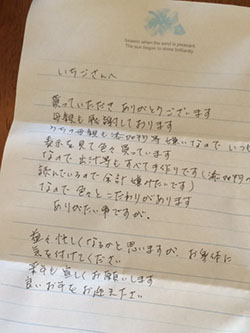 Season when the wind is pleasant.
The sun begins to shine brilliantly.
いちごさんへ
買っていただき ありがとうございます
母親も感謝しております
母親も 嫌いなので いつも
表示を見て色々買っています
なので出汁等もすべて手作りです(添加物
読んでいるので余計 嫌いだ です)
なので色々とこだわりがあります
ありがたい事ですが、
忙しくなるかと思いますが、お身体に
気を付けてください
来年も宜しくお願いします
良いお年をお迎え下さい